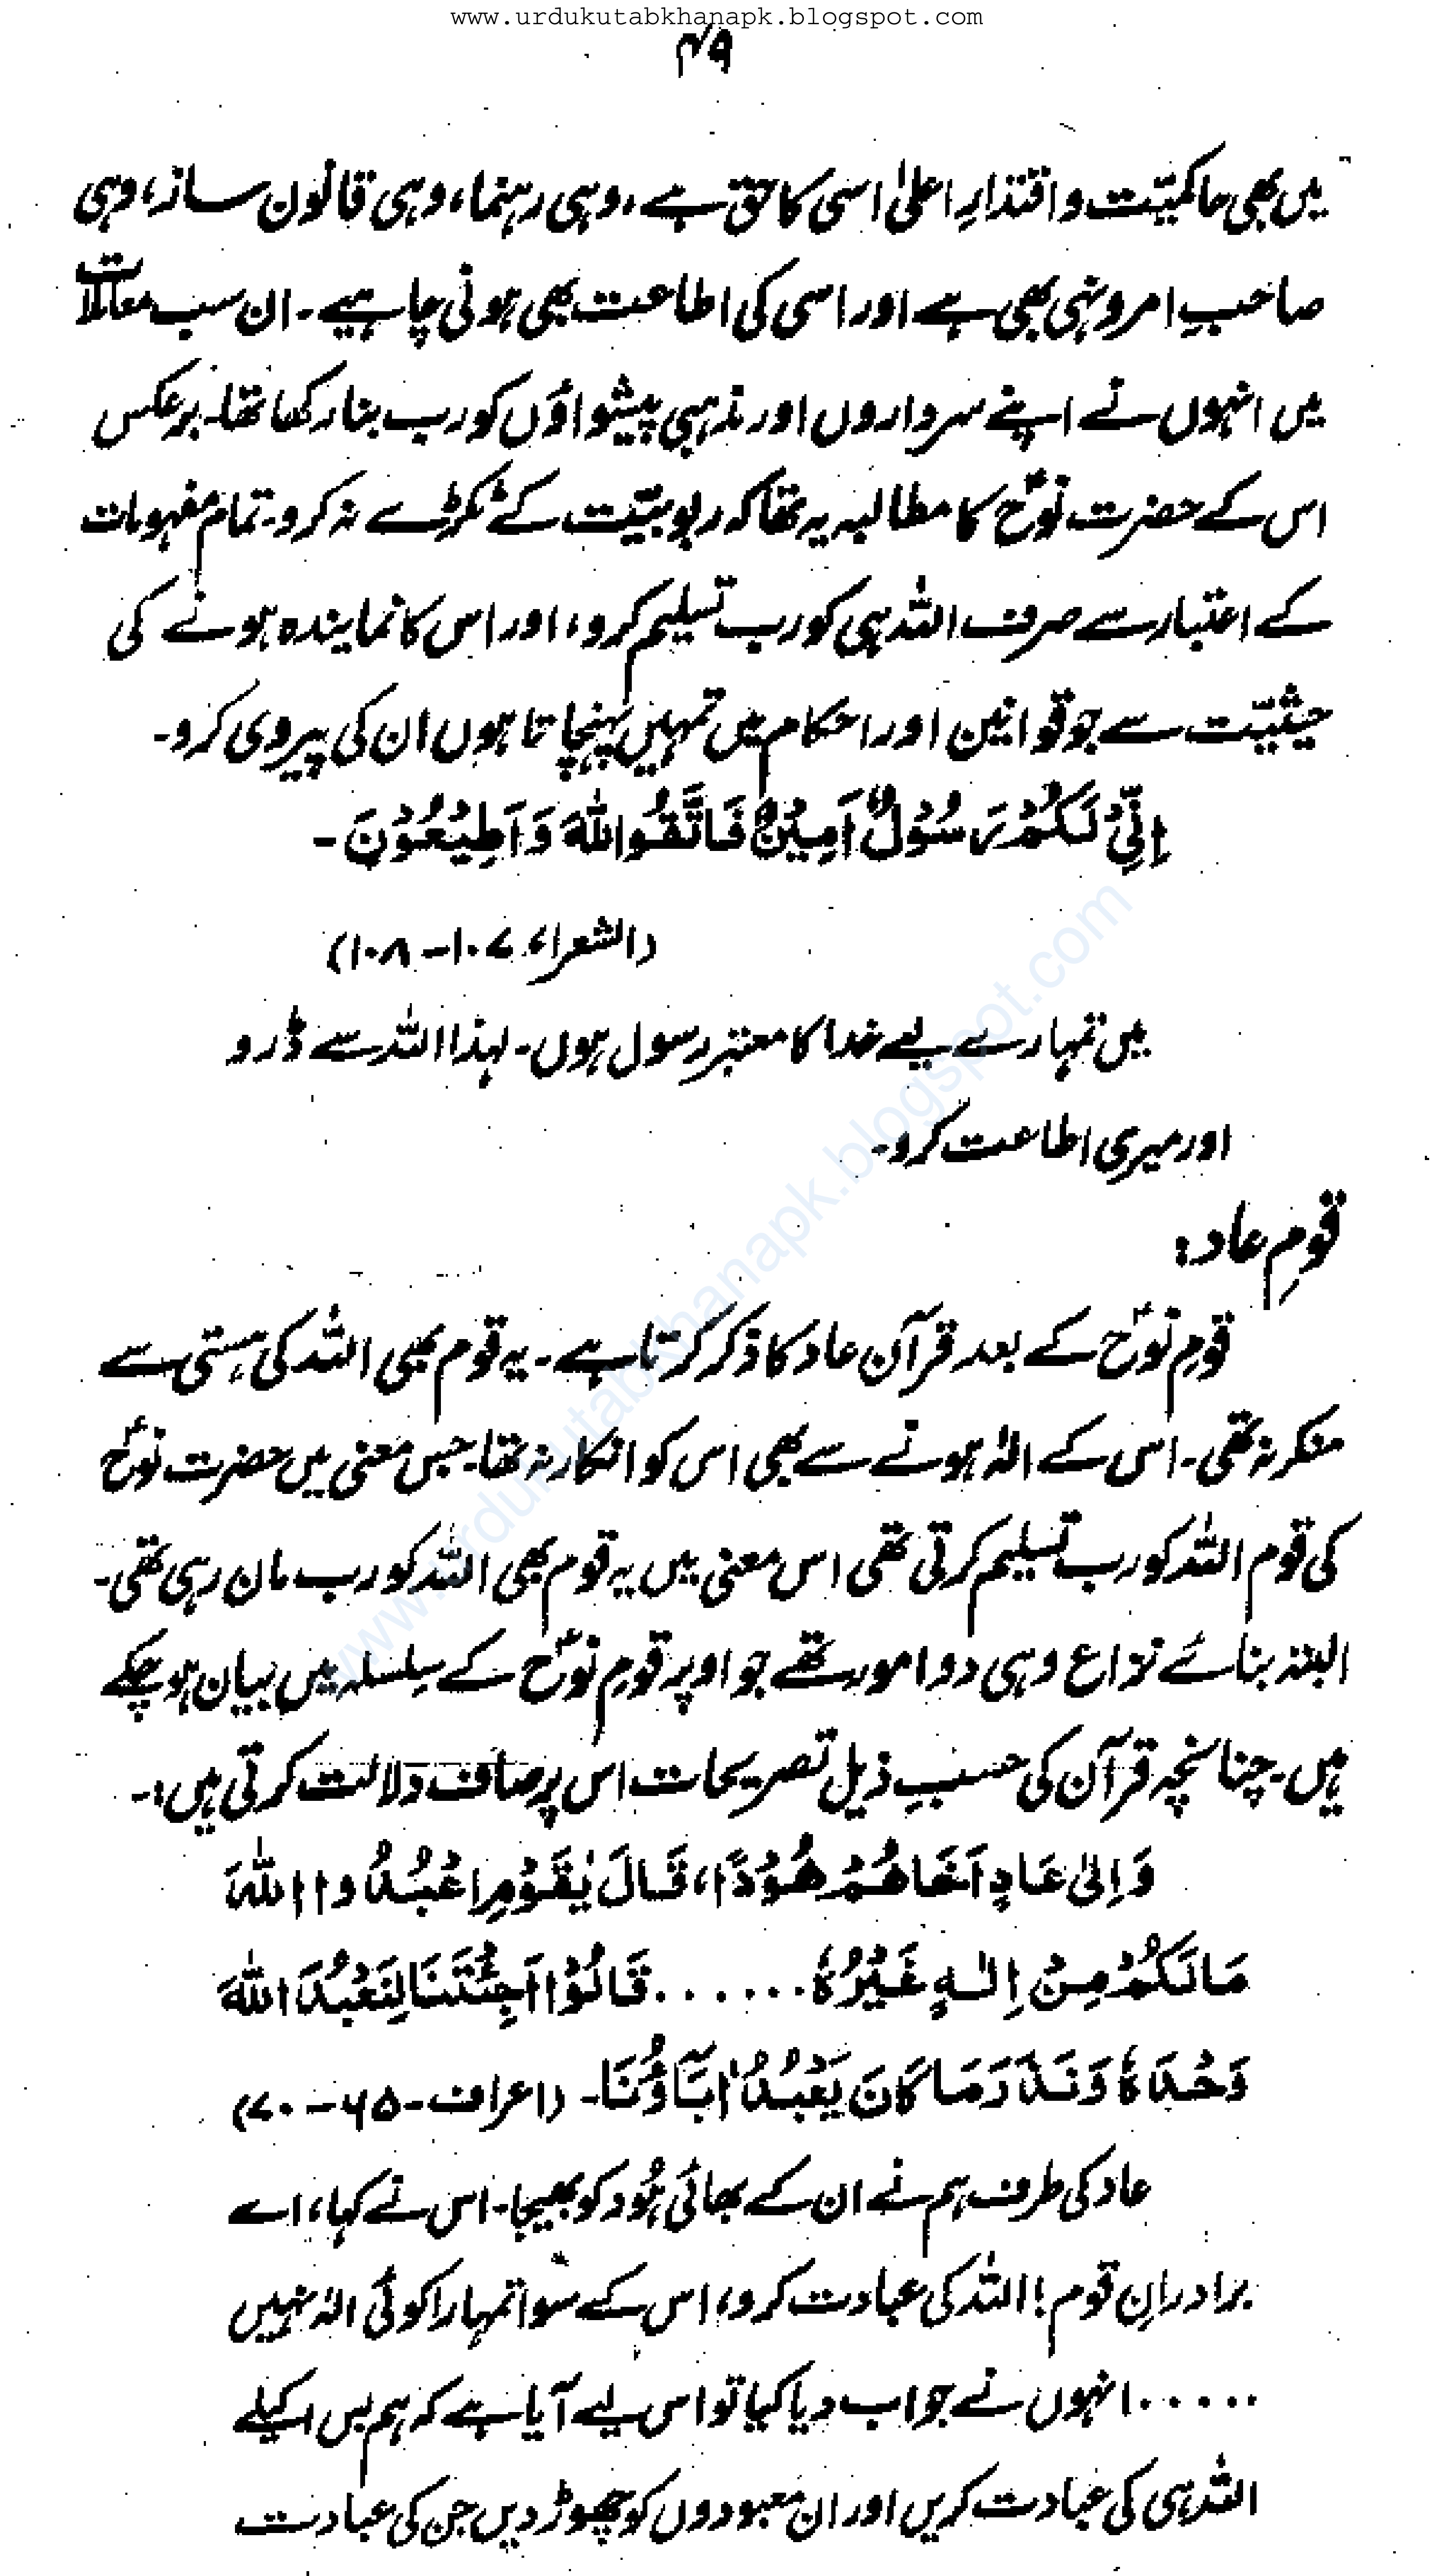 www.urdukutabkhanapk.blogspot.com
۴۹
میں بھی حاکمیّت و اقتدارِ اعلیٰ اسی کا حق ہے، وہی رہنما، وہی قانون ساز، وہی
صاحبِ امر و نہی بھی ہے اور اسی کی اطاعت بھی ہونی چاہیے۔ ان سب معاملات
میں انہوں نے اپنے سرداروں اور مذہبی پیشواؤں کو رب بنا رکھا تھا۔ برعکس
اس کے حضرت نوحؑ کا مطالبہ یہ تھا کہ ربوبیّت کے ٹکڑے نہ کرو۔ تمام مفہومات
کے اعتبار سے صرف اللہ ہی کو رب تسلیم کرو، اور اس کا نمایندہ ہونے کی
حیثیّت سے جو قوانین اور احکام میں تمہیں پہنچاتا ہوں ان کی پیروی کرو۔
اِنِّیْ لَکُمْ رَسُوْلٌ اَمِیْنٌ فَاتَّقُوا اللّٰہَ وَاَطِیْعُوْنَ۔
(الشعراء، ۱۰۷-۱۰۸)
میں تمہارے لیے خدا کا معتبر رسول ہوں۔ لہذا اللہ سے ڈرو
اور میری اطاعت کرو۔
قومِ عاد:
قومِ نوحؑ کے بعد قرآن عاد کا ذکر کرتا ہے۔ یہ قوم بھی اللہ کی ہستی سے
منکر نہ تھی۔ اس کے الٰہ ہونے سے بھی اس کو انکار نہ تھا۔ جس معنی میں حضرت نوحؑ
کی قوم اللہ کو رب تسلیم کرتی تھی اس معنی میں یہ قوم بھی اللہ کو رب مان رہی تھی۔
البتہ بنائے نزاع وہی دو امور تھے جو اوپر قومِ نوحؑ کے سلسلہ میں بیان ہو چکے
ہیں۔ چنانچہ قرآن کی حسبِ ذیل تصریحات اس پر صاف دلالت کرتی ہیں:۔
وَاِلٰی عَادٍ اَخَاھُمْ ھُوْدًا، قَالَ یٰقَوْمِ اعْبُدُوا اللّٰہَ
مَا لَکُمْ مِنْ اِلٰہٍ غَیْرُہٗ ...... قَالُوْا اَجِئْتَنَا لِنَعْبُدَ اللّٰہَ
وَحْدَہٗ وَنَذَرَ مَا کَانَ یَعْبُدُ اٰبَآؤُنَا۔ (اعراف۔ ۶۵-۷۰)
عاد کی طرف ہم نے ان کے بھائی ہُود کو بھیجا۔ اس نے کہا، اے
برادرانِ قوم! اللہ کی عبادت کرو، اس کے سوا تمہارا کوئی الٰہ نہیں
...... انہوں نے جواب دیا کیا تو اس لیے آیا ہے کہ ہم بس اکیلے
اللہ ہی کی عبادت کریں اور ان معبودوں کو چھوڑ دیں جن کی عبادت
www.urdukutabkhanapk.blogspot.com